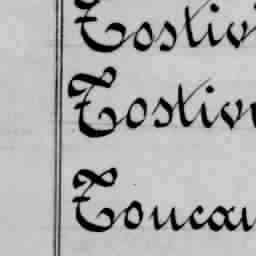 Tostiv
Tostiv
Toucau